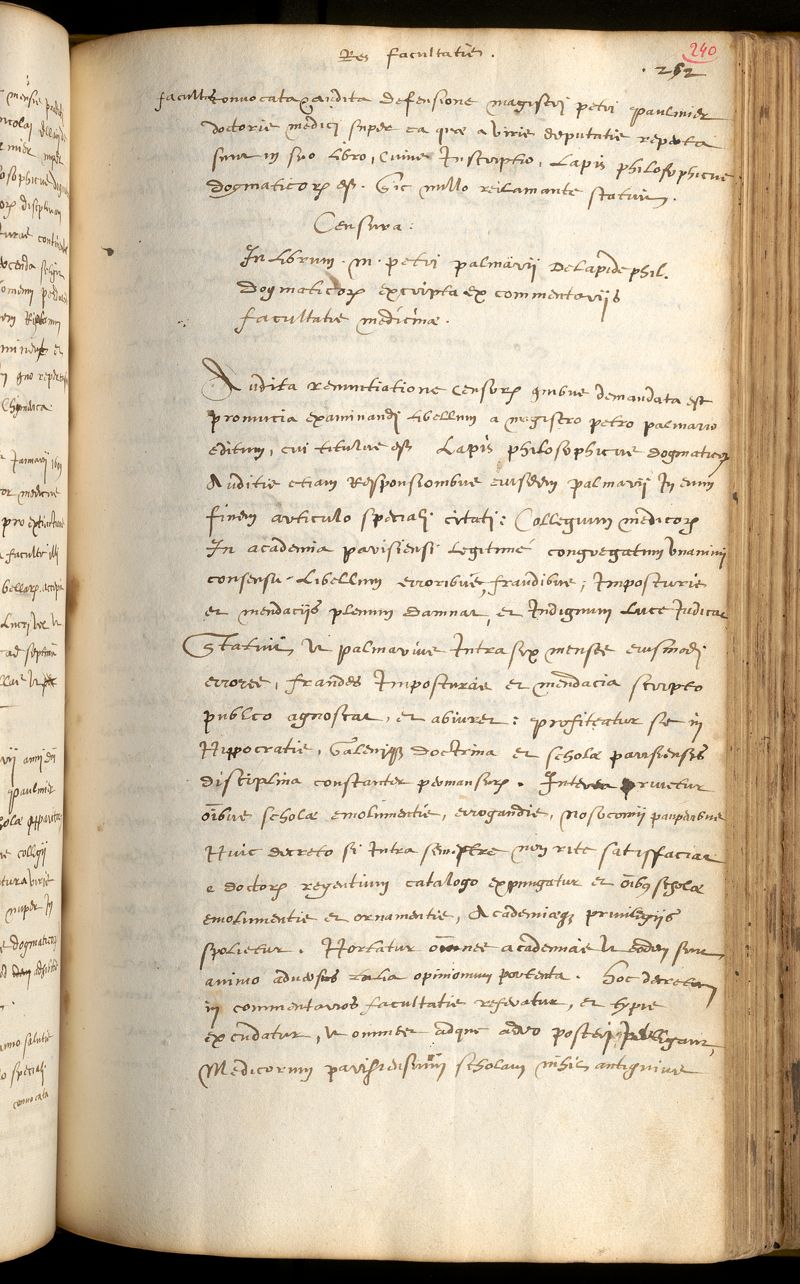 Res facultatis.
240
252
facultas convocata & audita defensione magistri petri paulmier
doctoris medici super ea quæ a viris deputatis reperta
sunt in suo libro, cuius Inscriptio, Lapis philosophicus
dogmaticorum est. Sic nullo reclamante statuit.
Censura:
In Librum. M. petri palmarii De Lapide phil.
Dogmaticorum excripta ex commentariis
facultatis medicinæ.
Audita renuntiatione censorum quibus demandata est
provincia examinandi libellum a magistro petro palmario
editum, cui titulus est Lapis philosophicus dogmaticorum
Auditis etiam Responsionibus eiusdem palmarii In eum
finem articulo speciali citati: Collegium medicorum
In academia parisiensi Legitimé congregatum unanimi
consensu Libellum erroribus, fraudibus, Imposturis
et mendaciis plenum damnat, et Indignum Luce Iudicat
Statuit ut palmarius Intra sex menses eiusmodi
errores, fraudes Imposturas et mendacia scripto
publico agnoscat, et abiuret: profiteatur se in
Hippocratis, Galenique doctrina et scholæ parisiensis
disciplina constanter permansurum. Interea privetur
oibus scholæ emolumentis, errogandis, nosocomii pauperibus
Huic decreto si Intra semestre non rite satisfaciat
e doctorum regentium catalogo expungatur et oibus scholæ
emolumentis et ornamentis, Academiæque privilegiis
spolietur. Hortatur omnes academias ut eodem sint
animo adversus talia opinionum portenta. Hoc decretum
in commentarios facultatis referatur, et typis
excudatur, ut omnes adque adeo posteri Intelligant,
Medicorum parisiensium scholam nihil antiquius